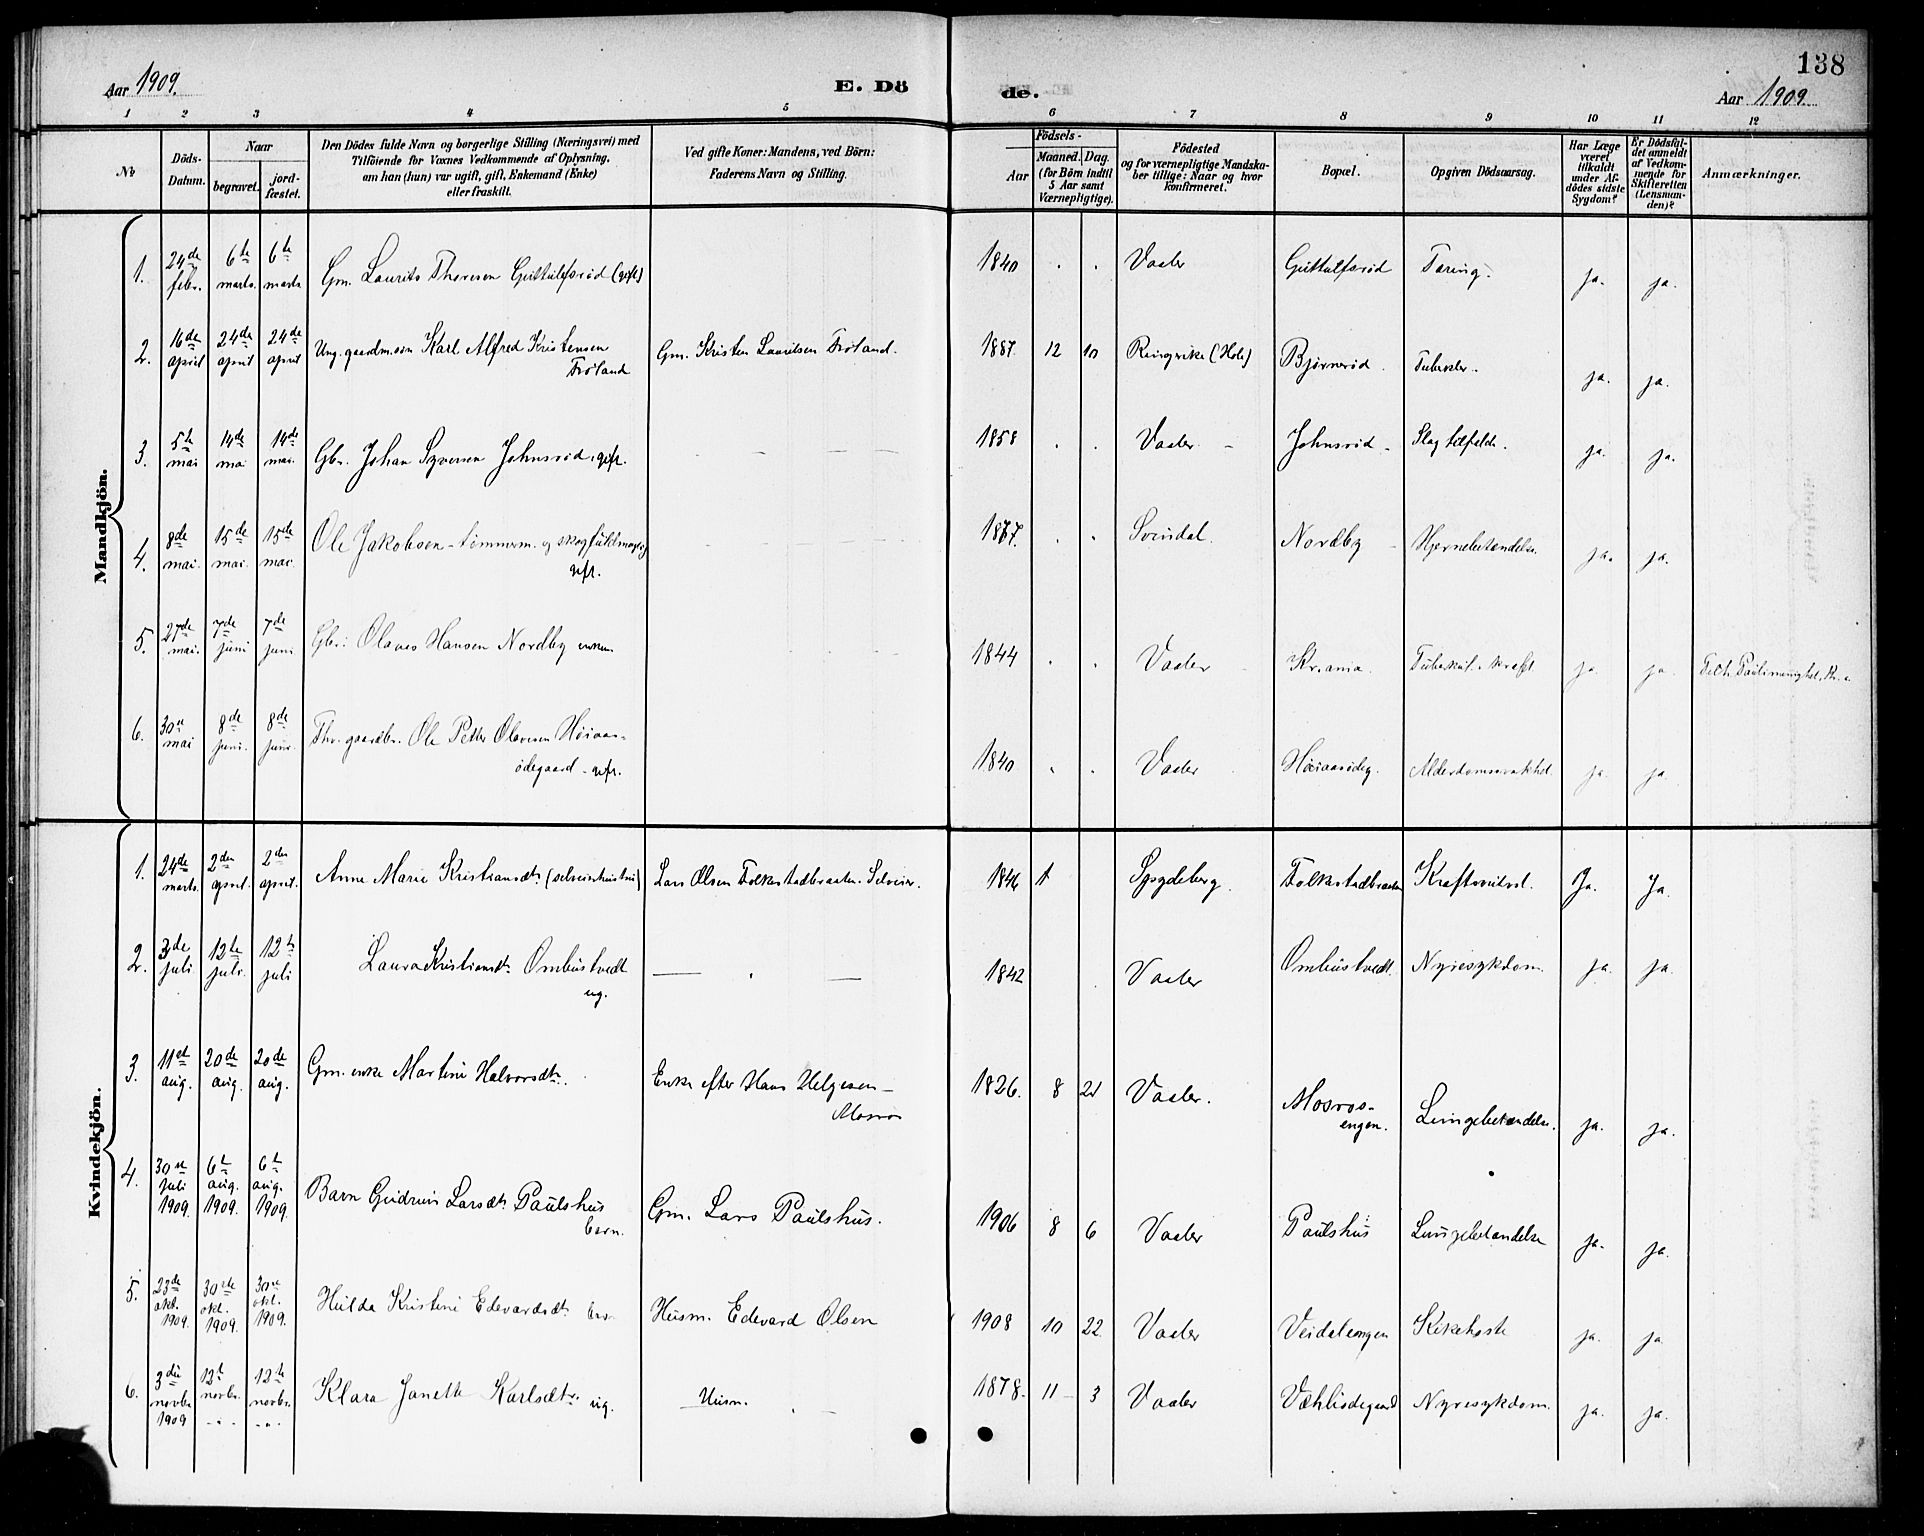 138
Aar 1909.
E. Dö
de.
Aar 1909
1 2 3 4 5 6 7 8 9 10 11 12
No
Döds-
Datum.
Naar
begravet.
jord-
fæstet.
Den Dödes fulde Navn og borgerlige Stilling (Næringsvei) med
Tilföiende for Voxnes Vedkommende af Oplysning,
om han (hun) var ugift, gift, Enkemand (Enke)
eller fraskilt.
Ved gifte Koner: Mandens, ved Börn:
Faderens Navn og Stilling.
Födsels-
Aar
Maaned. Dag.
(for Börn indtil
5 Aar samt
Værnepligtige).
Födested
og for værnepligtige Mandska-
ber tillige: Naar og hvor
konfirmeret.
Bopæl.
Opgiven Dödsaarsag.
Har Læge
været
tilkaldt
under Af-
dödes sidste
Sygdom?
Er Dödsfal-
det anmeldt
af Vedkom-
mende for
Skifteretten
(Lensman-
den)?
Anmærkninger.
Mandkjön.
1. 24de febr. 6te marts. 6te marts Gm. Laurits Thoresen Guttulfsrød (gift) 1840 . . Vaaler Guttulfsrød Tæring. ja. ja.
2. 16de april 24de april 24de april Ung. gaardm.søn Karl Alfred Kristensen
Frøland Gm. Kristen Lauritsen Frøland. 1887. 12 10 Ringerike (Hole) Bjørnerød. Tuberkler. ja. ja.
3. 5te mai 14de mai 14de mai. Gbr. Johan Syversen Johnsrød, gift. 1858 . . Vaaler Johnsrød Slagtilfælde. ja. ja.
4. 8de mai. 15de mai. 15de mai. Ole Jakobsen - tømmerm. og
gift. 1867. . . Svindal. Nordby Hjernebetændelse. ja. ja.
5. 27de mai. 7de juni 7de juni Gbr. Olaves Hansen Nordby enkem. 1844 . . Vaaler Kr.ania. Tuberkul. kræft ja ja.
6. 30te mai 8de juni. 8de juni. Fhv. gaardbr. Ole Petter Olavesen Høiaas-
ødegaard - gift. 1840 . . Vaaler Høiaasødeg. Alderdomssvakhet. ja. ja.
Kvindekjön.
1. 24de marts. 2den april. 2den april. Anne Marie Kristiansdtr. (selveierhustru) Lars Olsen Folkestadbraaten. Selveier. 1846 1 Spydeberg. Folkestadbraaten Kræftsvulst. Ja. Ja.
2. 3de juli 12te juli. 12te juli Laura Kristiansdtr. Ombustvedt
ug. 1842 . Vaaler Ombustvedt. Nyresykdom. ja. ja.
3. 11te aug. 20de aug. 20de aug. Gm. enke Martine Halvorsdtr. Enke efter Hans Helgesen -
Mosvos 1826. 8 21 Vaaler. Mosvos-
engen. Lungebetændelse. ja. ja.
4. 30te juli 1909. 6te aug. 1909. 6te aug. 1909. Barn Gudrun Larsdtr. Paulshus
barn. Gm. Lars Paulshus. 1906 8 6 Vaaler Paulshus Lungebetændelse ja. ja.
5. 23de okt. 1909. 30te okt. 1909. 30te okt. 1909. Hulda Kristine Edevardsdtr. Husm. Edevard Olsen 1908 10 22. Vaaler Veidalengen Kikhoste ja. ja
6. 3die novbr. 1909 12te novbr. 12te novbr. Klara Janette Karlsdtr. ug. Husm. 1878. 11 3 Vaaler Nyresykdom. ja. ja.